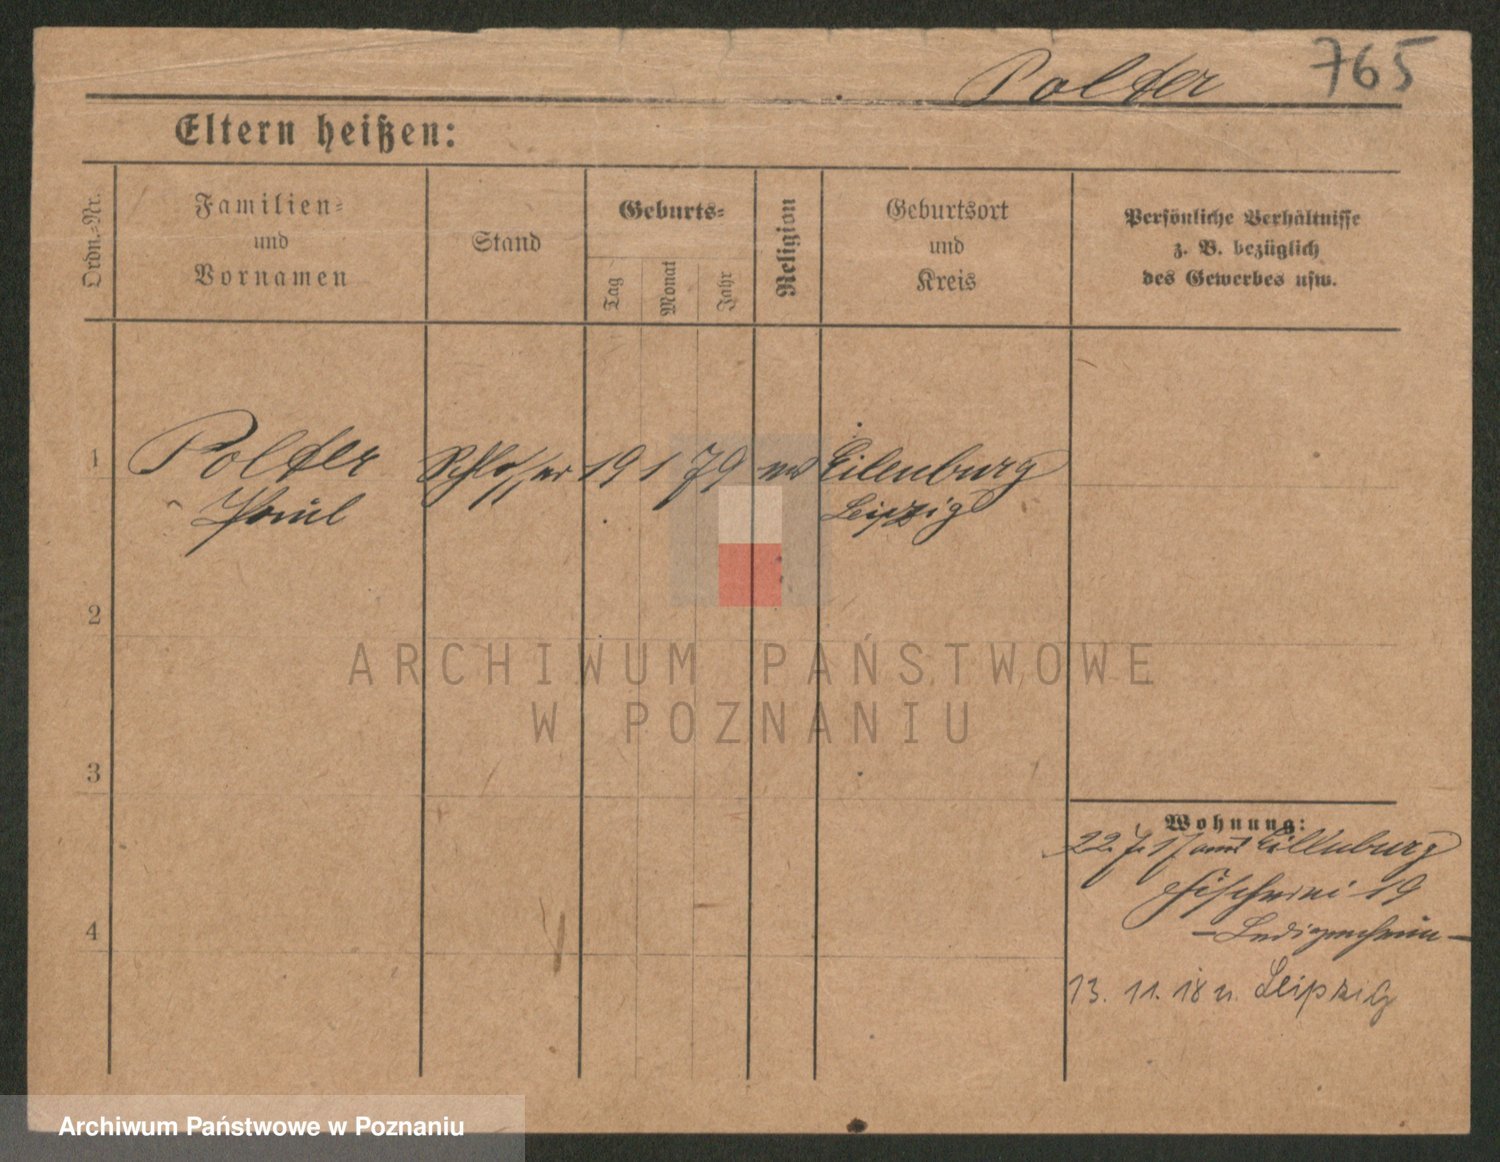 Polder 765
Eltern heißen:
Ordn.-Nr.
Familien-
und
Vornamen
Stand
Geburts-
Tag
Monat
Jahr
Religion
Geburtsort
und
Kreis
Persönliche Verhältnisse
z. B. bezüglich
des Gewerbes usw.
1 Polder Schlosser 19 1 79 Eilenburg
Paul Leipzig
2
3
4
Wohnung:
22. 7. 17 aus Eilenburg
19
– Ledigenheim –
13. 11. 18 n. Leipzig
ARCHIWUM PAŃSTWOWE
W POZNANIU
Archiwum Państwowe w Poznaniu